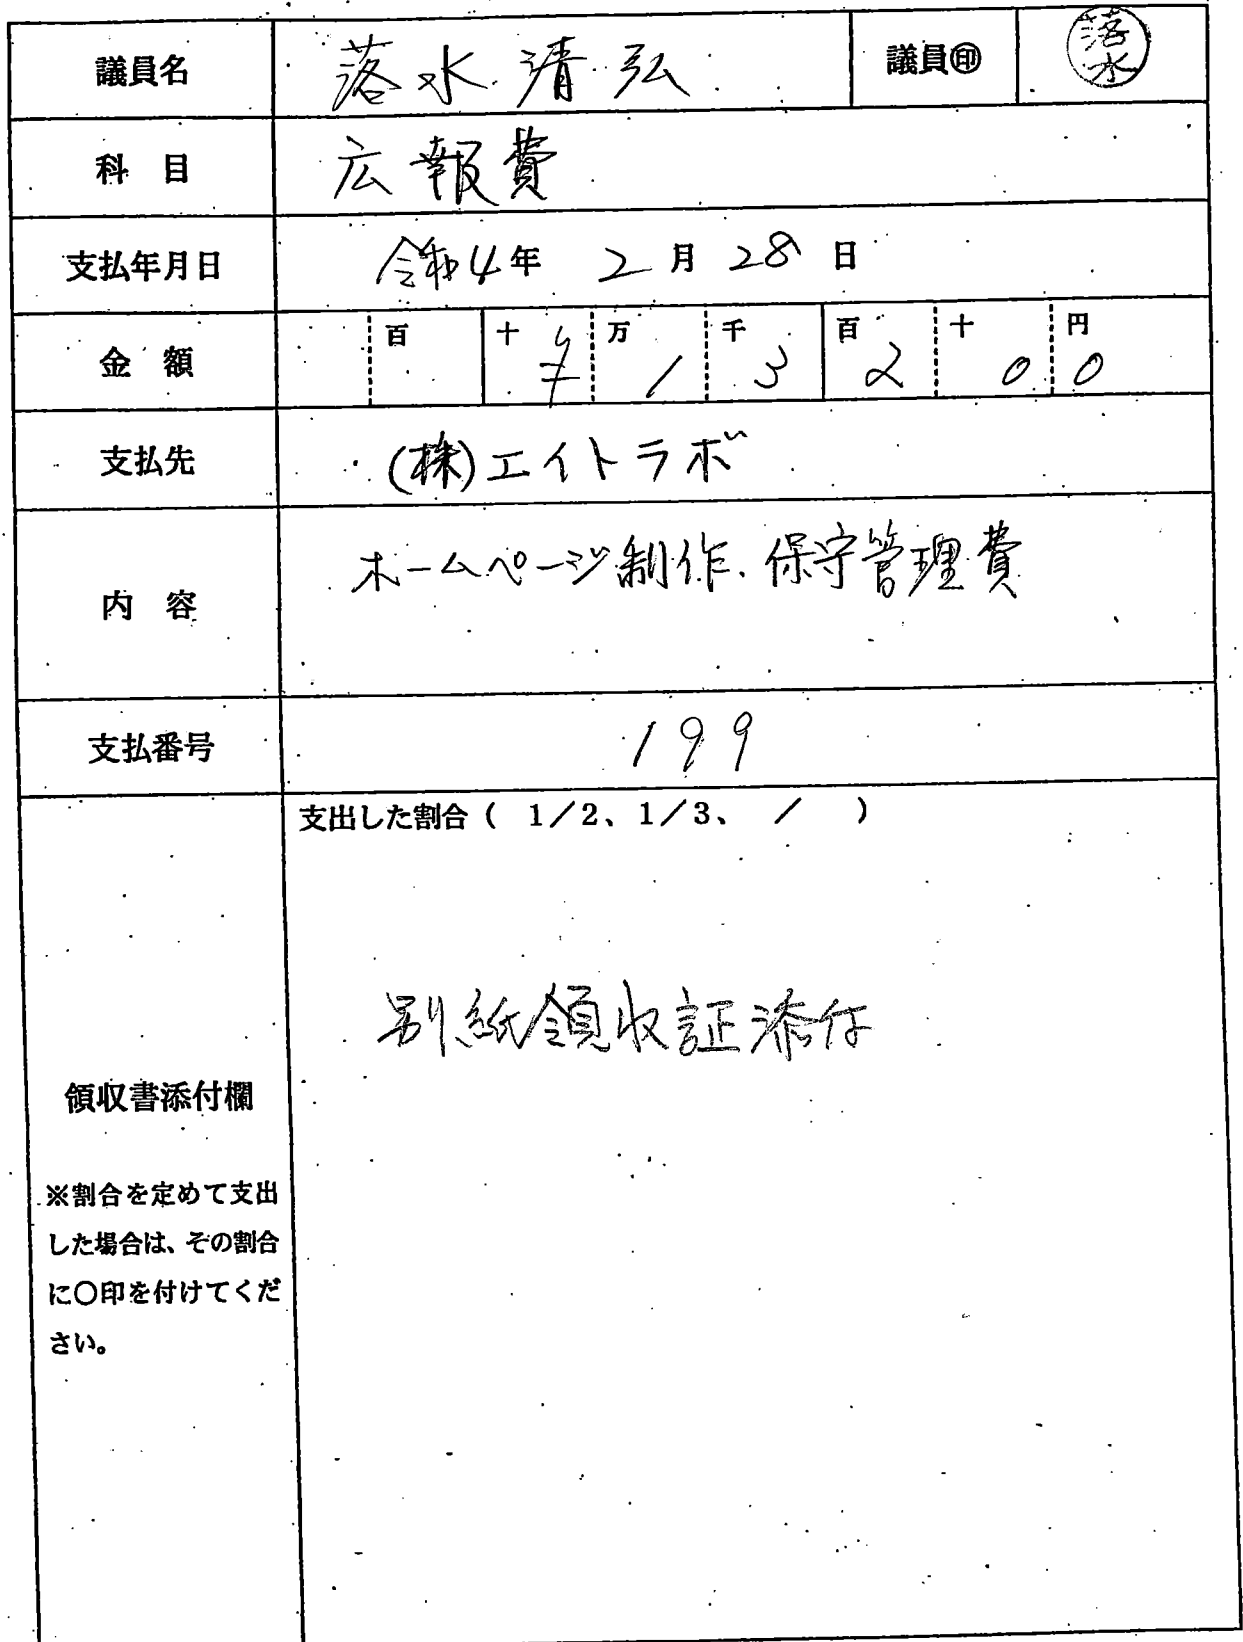 議員名 落水清弘 議員㊞ 落水
科 目 広報費
支払年月日 令和4年 2月 28日
百 十 万 千 百 十 円
金 額 ¥ 1 3 2 0 0
支払先 (株)エイトラボ
内 容 ホームページ制作、保守管理費
支払番号 199
支出した割合( 1/2、1/3、 / )
別紙領収証添付
領収書添付欄
※割合を定めて支出
した場合は、その割合
に〇印を付けてくだ
さい。